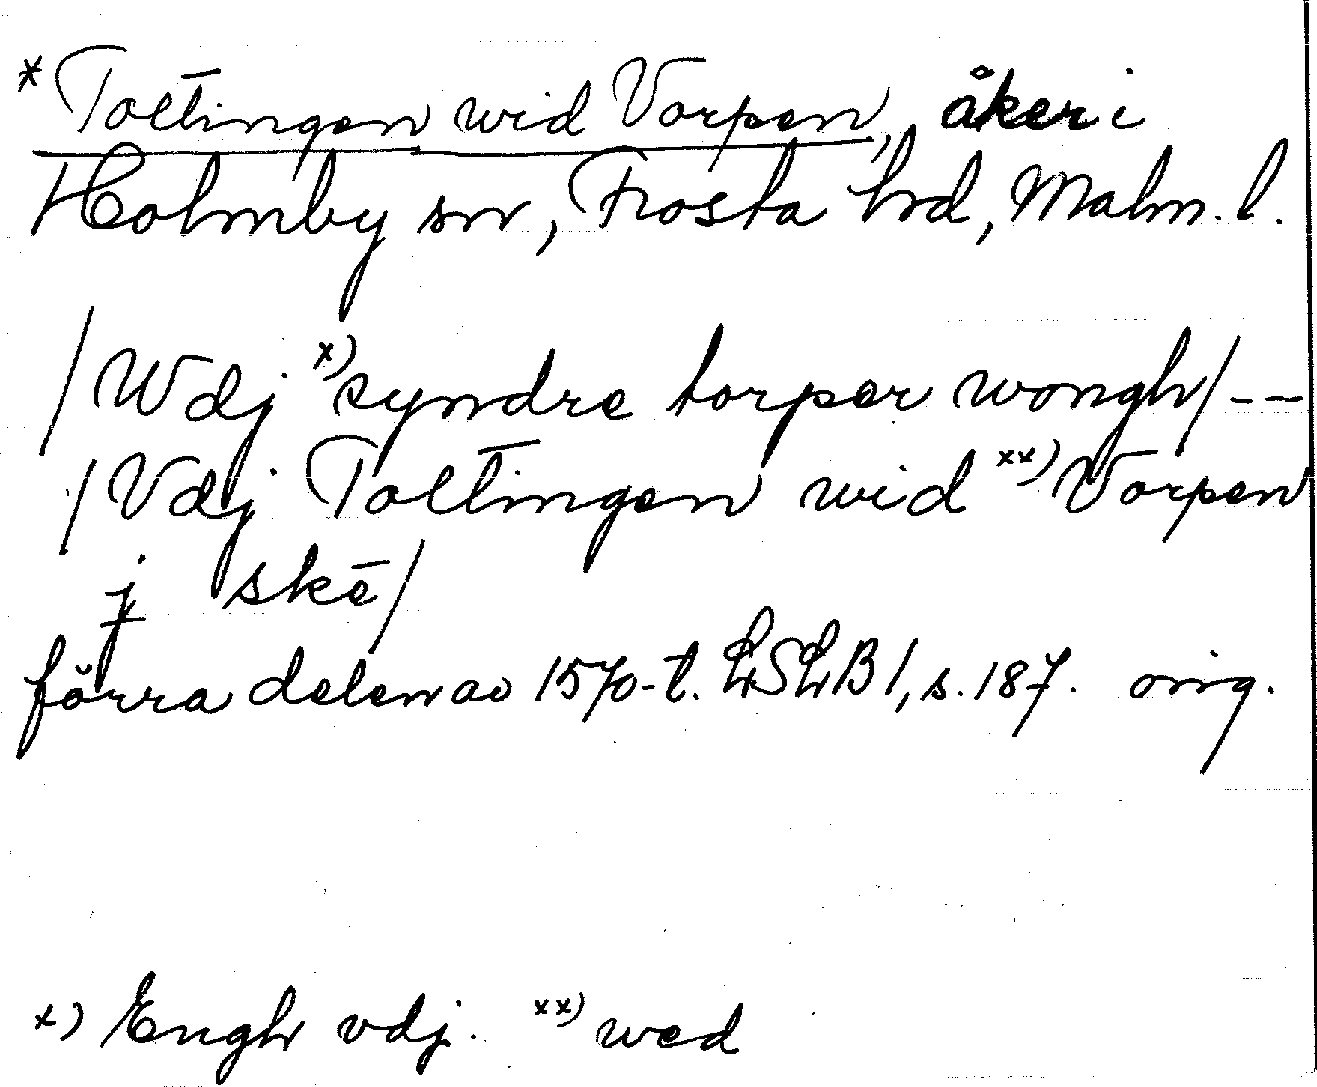 * Toltingen wid Vorpen, åker i
Holmby sn, Frosta hd, Malm. l.
/Wdj x) syndre torper wongh/ --
/Vdj Toltingen wid xx) Vorpen
j skē/
förra delen av 1570-t. LSLB 1, s. 187. orig.
x) Engh vdj. xx) wed